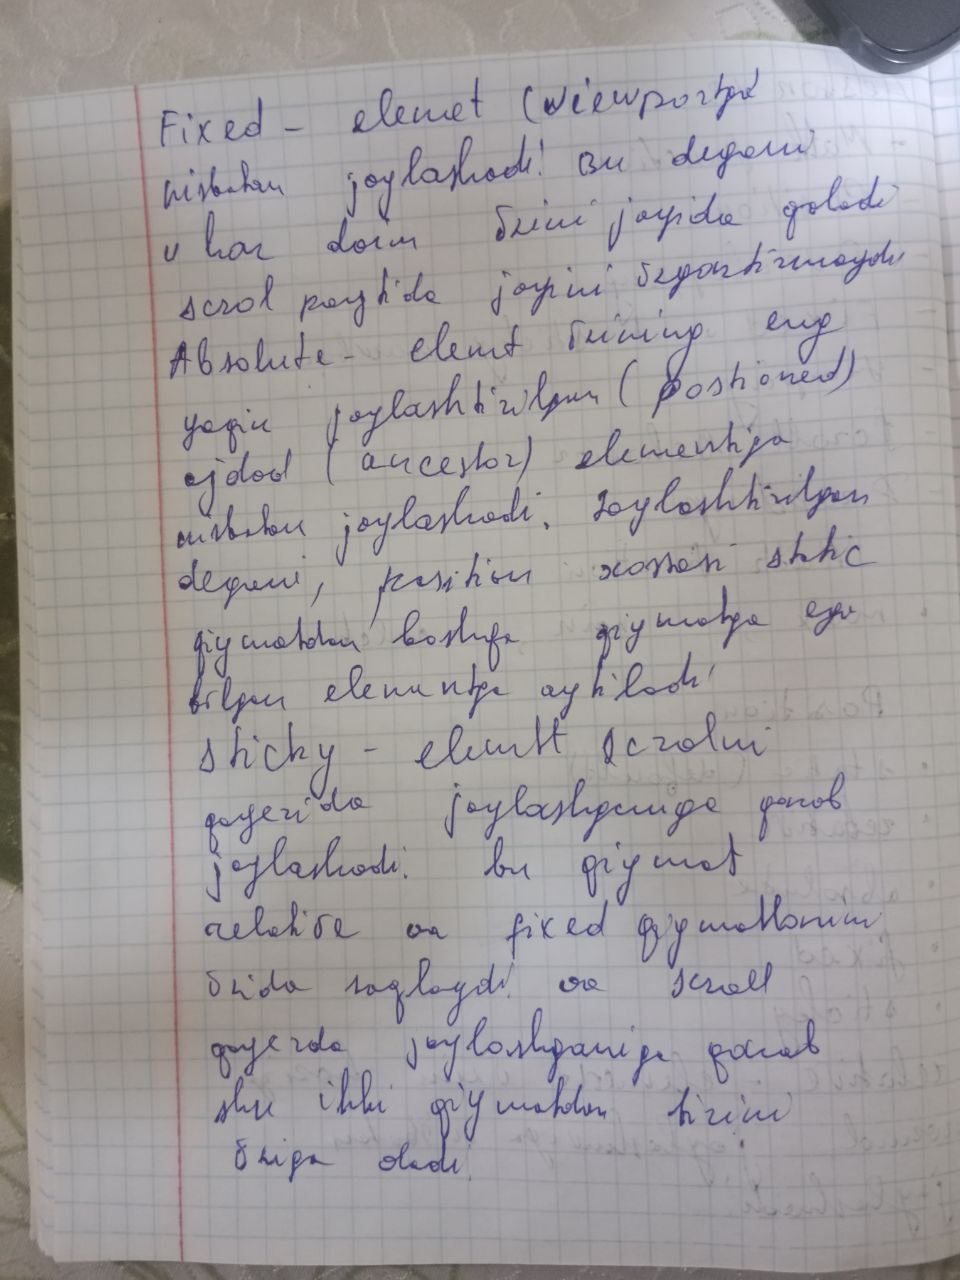 Fixed - elemet (viewportga
nisbatan joylashadi! Bu degani
u har doim õzini joyida qoladi
scrol paytida joyini õzgartirmaydi
Absolute - elemt õzining eng
yaqin joylashtirilgan (postioned)
ajdod (ancestor) elementiga
nisbatan joylashadi. Joylashtirilgan
degani, position xossasi static
qiymatdan boshqa qiymatga ega
bõlgan elementga aytiladi
sticky - elemtt scrolni
qayerida joylashganiga qarab
joylashadi. bu qiymat
relative va fixed qiymatlarini
õzida saqlaydi va scroll
qayerda joylashganiga qarab
shu ikki qiymatdan birini
õziga oladi.